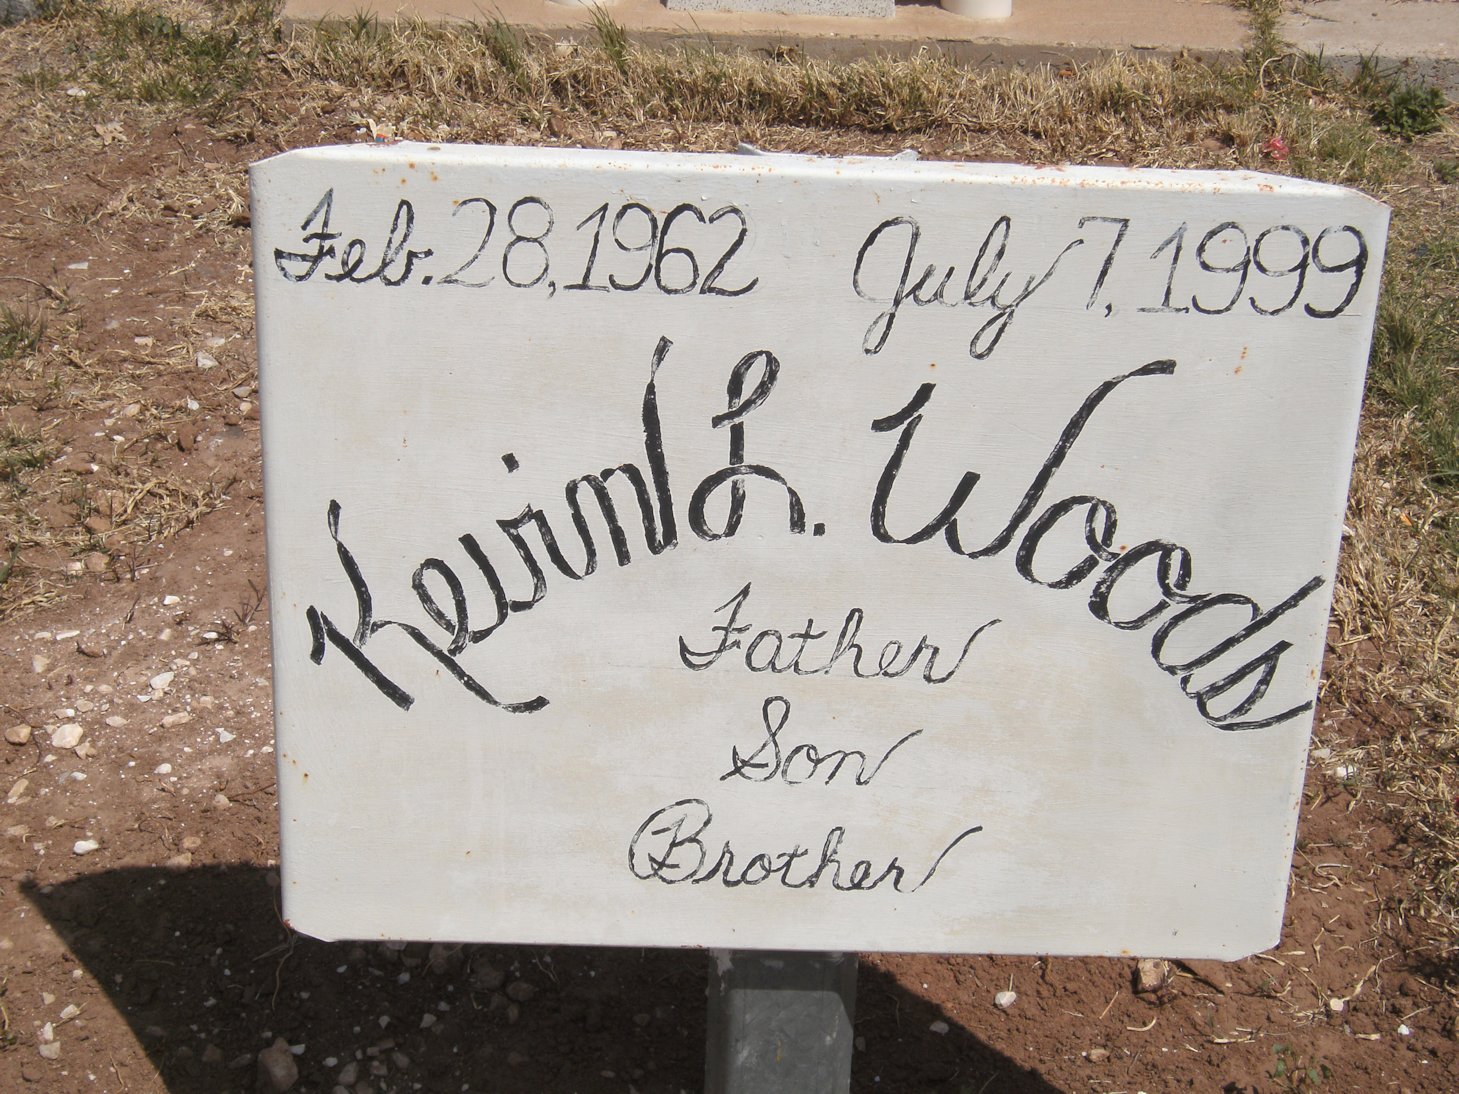 Feb. 28, 1962 July 7, 1999
Kevin L. Woods
Father
Son
Brother